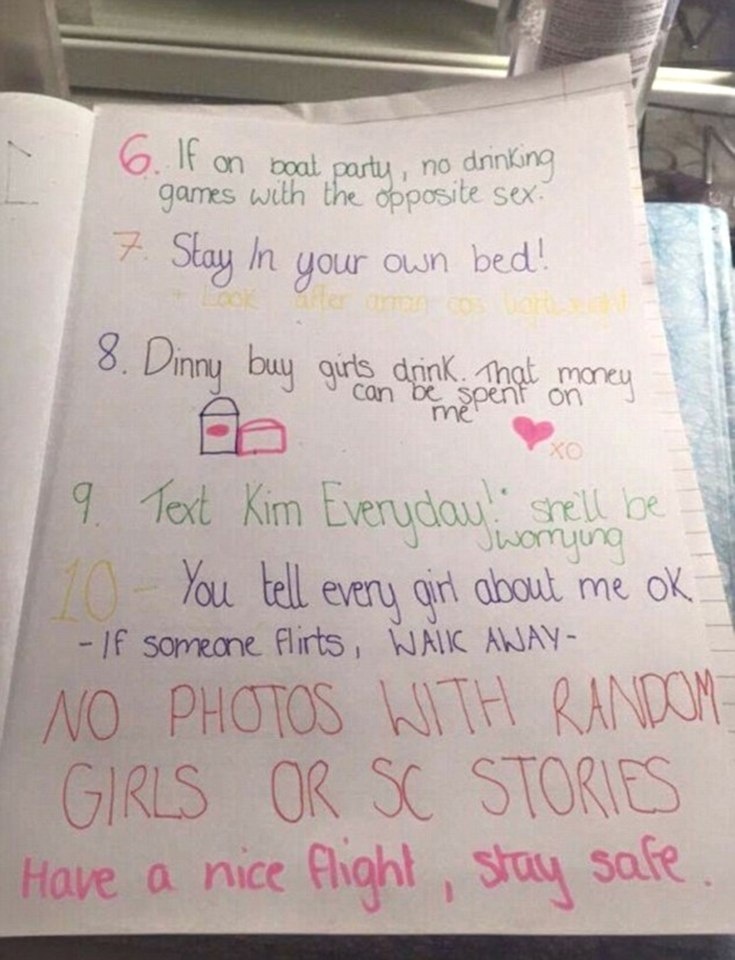 6. If on boat party, no drinking
games with the opposite sex.
7. Stay In your own bed!
+ Look after arran cos lightweight
8. Dinny buy girls drink. That money
can be spent on
me
XO
9. Text Kim Everyday! she'll be
worrying
10 - You tell every girl about me ok
- If someone flirts, WALK AWAY -
NO PHOTOS WITH RANDOM
GIRLS OR SC STORIES
Have a nice flight, stay safe.